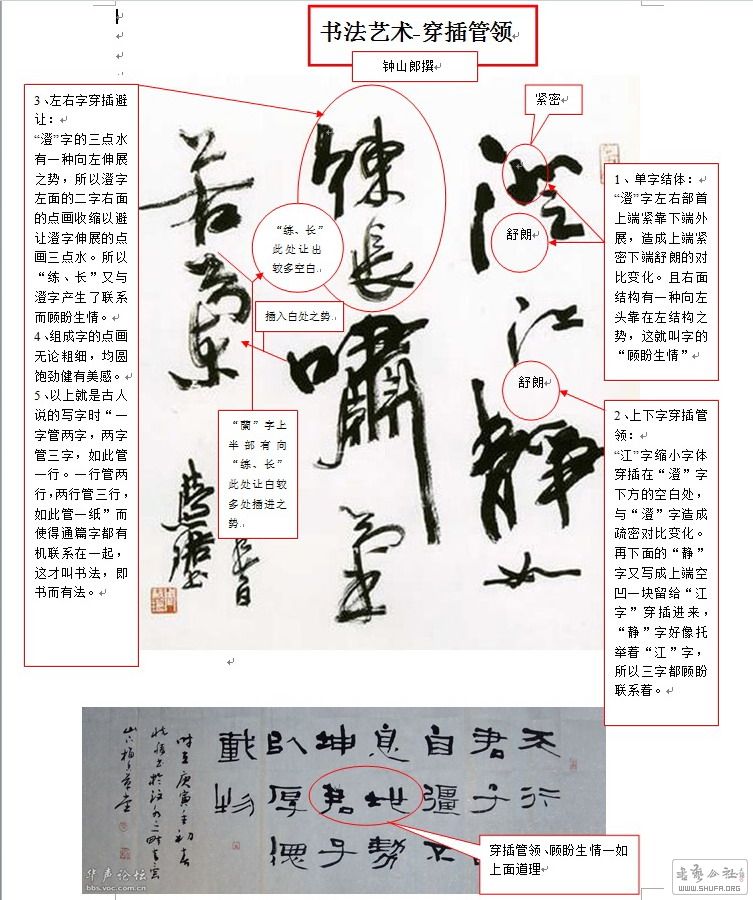 书法艺术-穿插管领
钟山郎撰
3、左右字穿插避
让：
“澄”字的三点水
有一种向左伸展
之势，所以澄字
左面的二字右面
的点画收缩以避
让澄字伸展的点
画三点水。所以
“练、长”又与
澄字产生了联系
而顾盼生情。
4、组成字的点画
无论粗细，均圆
饱劲健有美感。
5、以上就是古人
说的写字时“一
字管两字，两字
管三字，如此管
一行。一行管两
行，两行管三行，
如此管一纸”而
使得通篇字都有
机联系在一起，
这才叫书法，即
书而有法。
紧密
舒朗
舒朗
“练、长”
此处让出
较多空白。
插入白处之势。
“蘭”字上
半部有向
“练、长”
此处让白较
多处插进之
势。
1、单字结体：
“澄”字左右部首
上端紧靠下端外
展，造成上端紧
密下端舒朗的对
比变化。且右面
结构有一种向左
头靠在左结构之
势，这就叫字的
“顾盼生情”
2、上下字穿插管
领：
“江”字缩小字体
穿插在“澄”字
下方的空白处，
与“澄”字造成
疏密对比变化。
再下面的“静”
字又写成上端空
凹一块留给“江
字”穿插进来，
“静”字好像托
举着“江”字，
所以三字都顾盼
联系着。
澄江靜如
練長嘯氣
若蘭
天行
君子
自彊不
息地勢
坤君子
以厚德
載物
时在庚寅年初春
穿插管领、顾盼生情一如
上面道理
华声论坛
bbs.voc.com.cn
WWW.SHUFA.ORG